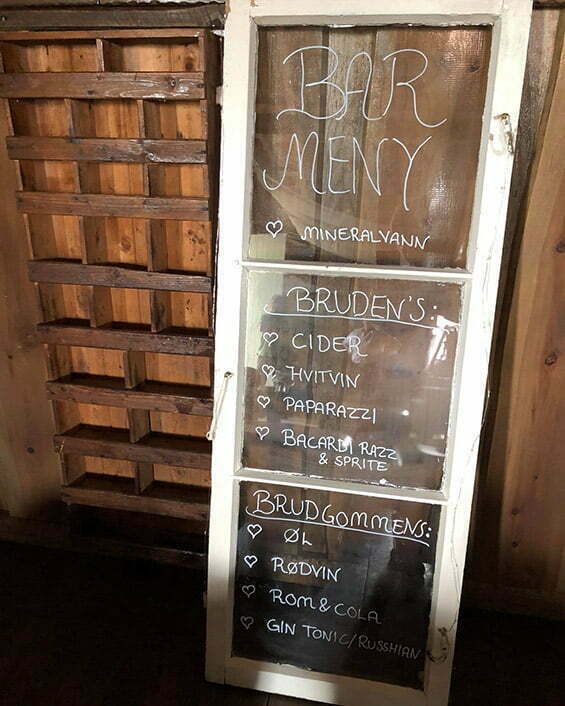 BAR
MENY
♡ MINERALVANN
BRUDEN'S:
♡ CIDER
♡ HVITVIN
♡ PAPARAZZI
♡ BACARDI RAZZ
& SPRITE
BRUDGOMMENS:
♡ ØL
♡ RØDVIN
♡ ROM & COLA
♡ GIN TONIC/RUSSHIAN